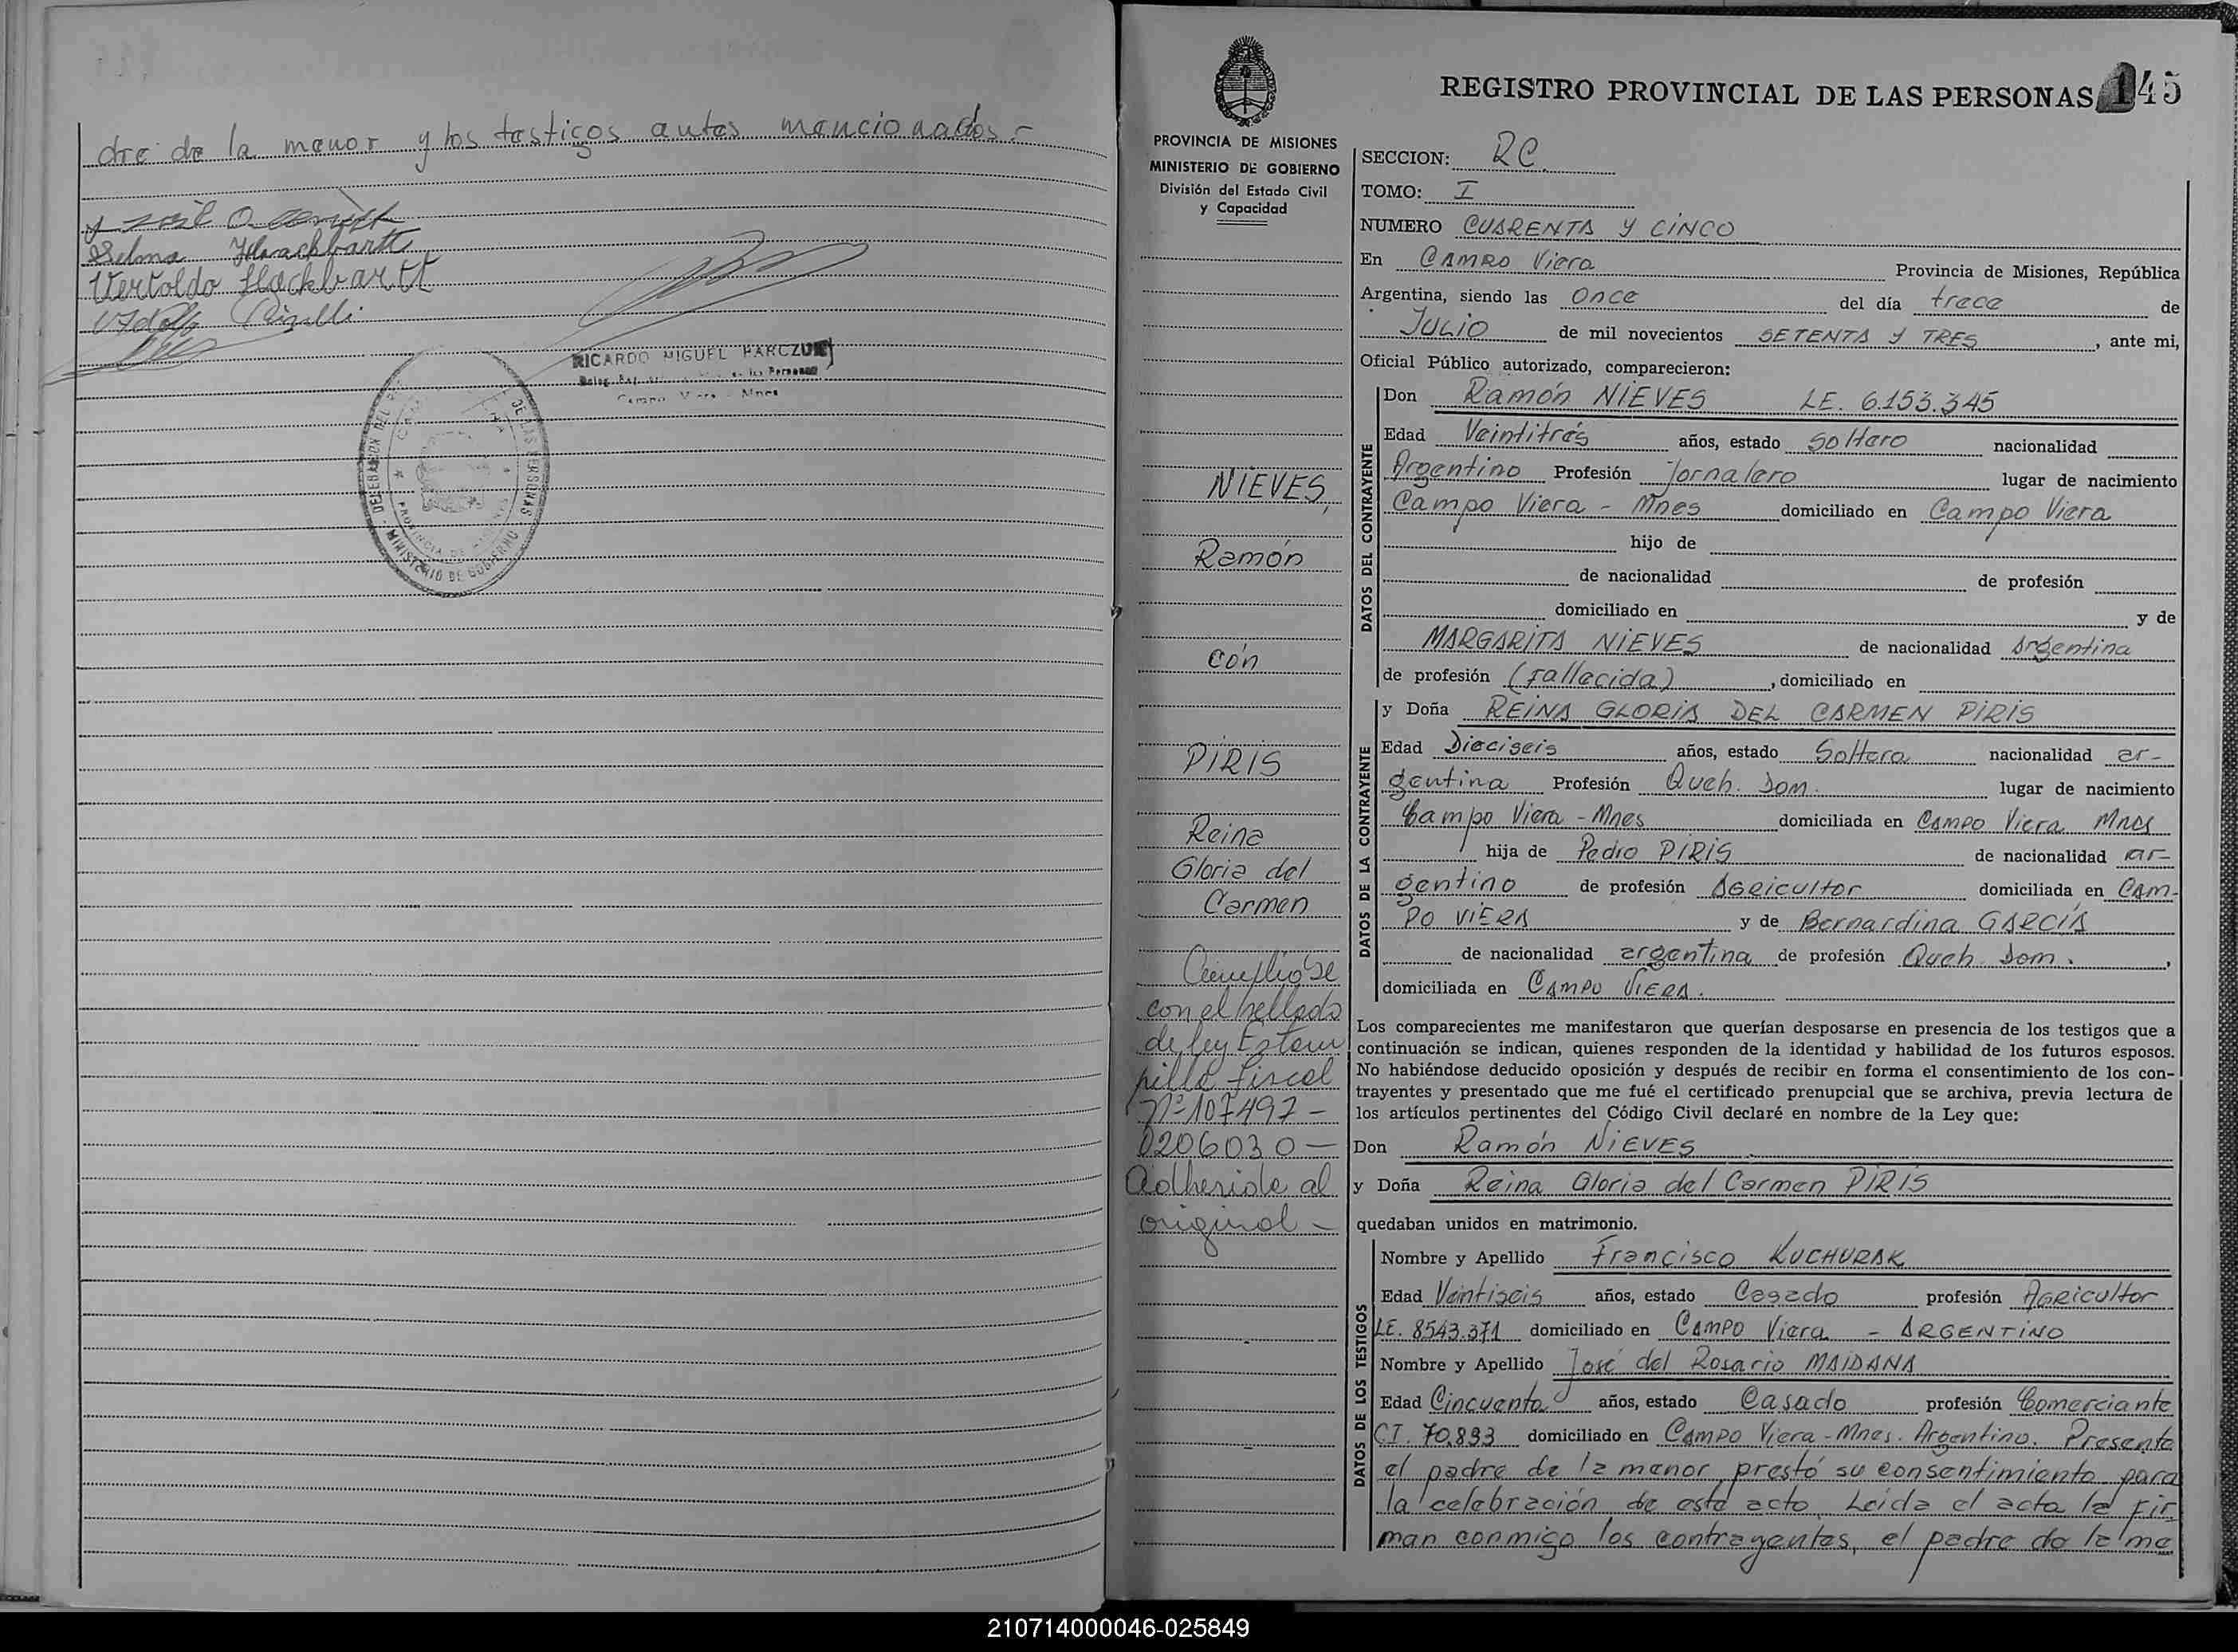 dre de la menor y los testigos antes mencionados.-
Selma Hachbartt
Vertoldo Hackbartt
RICARDO MIGUEL
Campo Viera - Mnes
DELEGACION DEL DE LAS PERSONAS
PROVINCIA DE MISIONES
MINISTERIO DE GOBIERNO
REGISTRO PROVINCIAL DE LAS PERSONAS 145
PROVINCIA DE MISIONES
MINISTERIO DE GOBIERNO
División del Estado Civil
y Capacidad
NIEVES,
Ramón
con
PIRIS
Reina
Gloria del
Carmen
Cumplióse
con el sellado
de ley Estam
pilla fiscal
Nº 107497 -
0206030 -
Adherida al
original -
SECCION: RC.
TOMO: I
NUMERO CUARENTA Y CINCO
En CAMPO Viera Provincia de Misiones, República
Argentina, siendo las once del día trece de
JULIO de mil novecientos SETENTA Y TRES, ante mi,
Oficial Público autorizado, comparecieron:
DATOS DEL CONTRAYENTE
Don Ramón NIEVES LE. 6.153.345
Edad Veintitrés años, estado soltero nacionalidad
Argentino Profesión Jornalero lugar de nacimiento
Campo Viera - Mnes domiciliado en Campo Viera
hijo de
de nacionalidad de profesión
domiciliado en y de
MARGARITA NIEVES de nacionalidad Argentina
de profesión (fallecida), domiciliado en
DATOS DE LA CONTRAYENTE
y Doña REINA GLORIA DEL CARMEN PIRIS
Edad Dieciseis años, estado Soltera nacionalidad ar-
gentina Profesión Queh. Dom. lugar de nacimiento
Campo Viera - Mnes domiciliada en CAMPO Viera Mnes
hija de Pedro PIRIS de nacionalidad ar-
gentino de profesión AGRICULTOR domiciliada en CAM-
PO VIERA y de Bernardina GARCÍA
de nacionalidad argentina de profesión Queh. Dom.,
domiciliada en CAMPO VIERA.
Los comparecientes me manifestaron que querían desposarse en presencia de los testigos que a
continuación se indican, quienes responden de la identidad y habilidad de los futuros esposos.
No habiéndose deducido oposición y después de recibir en forma el consentimiento de los con-
trayentes y presentado que me fué el certificado prenupcial que se archiva, previa lectura de
los artículos pertinentes del Código Civil declaré en nombre de la Ley que:
Don Ramón NIEVES
y Doña Reina Gloria del Carmen PIRIS
quedaban unidos en matrimonio.
DATOS DE LOS TESTIGOS
Nombre y Apellido Francisco KUCHURAK
Edad Veintiseis años, estado Casado profesión AGRICULTOR
LE. 8543.371 domiciliado en CAMPO Viera - ARGENTINO
Nombre y Apellido José del Rosario MAIDANA
Edad Cincuenta años, estado Casado profesión Comerciante
CI. 70.893 domiciliado en CAMPO Viera - Mnes. Argentino. Presente
el padre de la menor, prestó su consentimiento para
la celebración de este acto. Leída el acta la fir-
man conmigo los contrayentes, el padre de la me
210714000046-025849